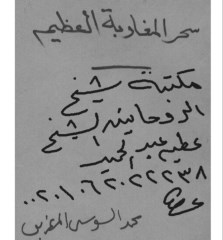 سحر المغاربة العظيم
مكتبة شيخ
الروحانيين الشيخ
عطيه عبد الحميد
٠٠٢٠١٠٦٢٠٢٢٢٣٨
عطيه
محمد السوسي المغربي